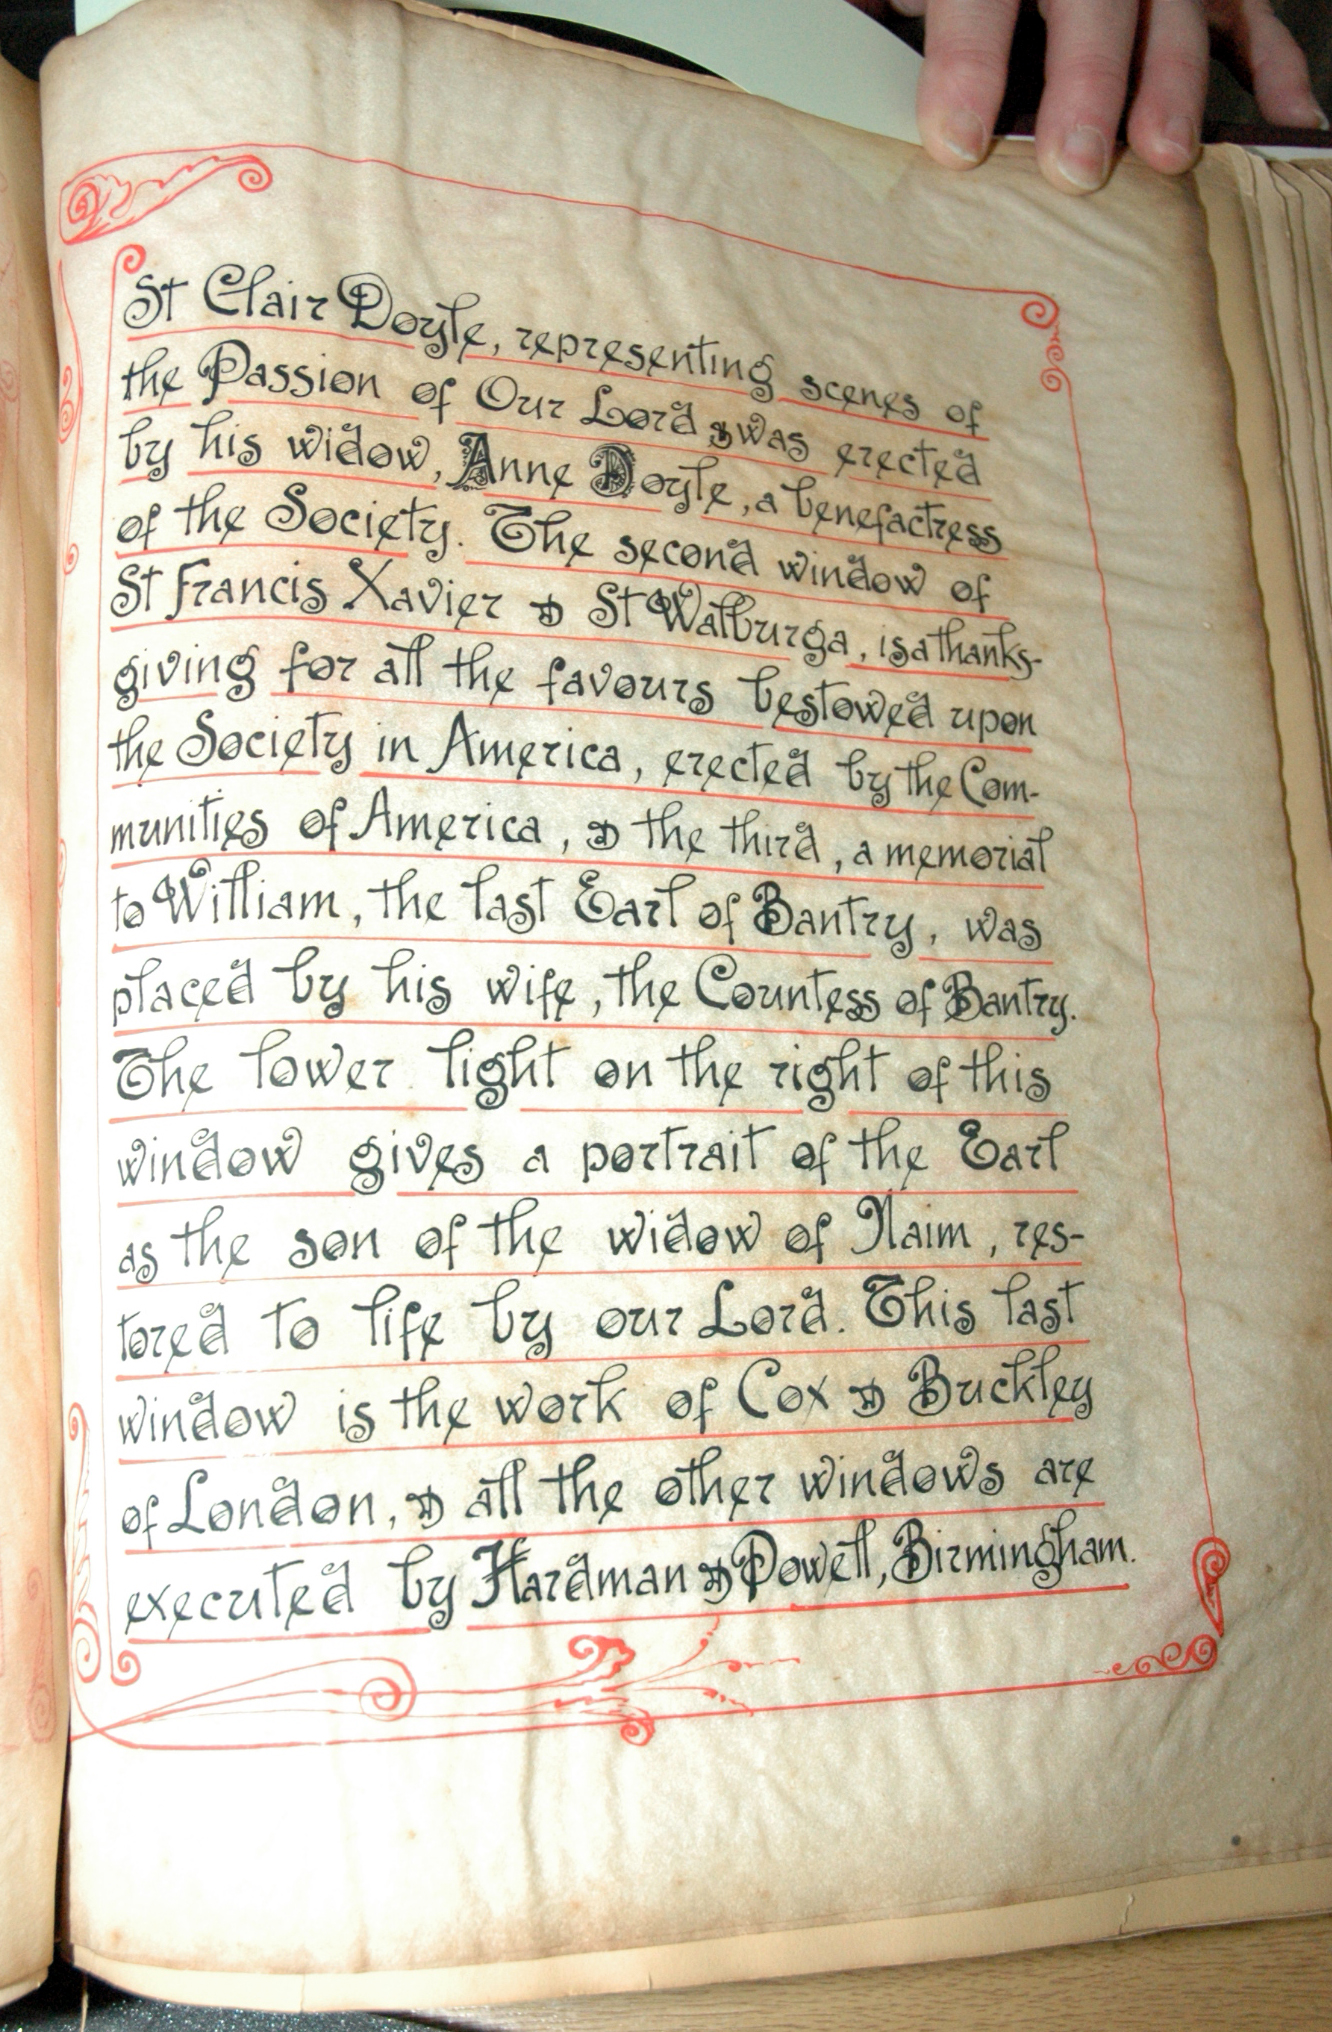 St Clair Doyle, representing scenes of
the Passion of Our Lord & was erected
by his widow, Anne Doyle, a benefactress
of the Society. The second window of
St Francis Xavier & St Walburga, is a thanks-
giving for all the favours bestowed upon
the Society in America, erected by the Com-
munities of America, & the third, a memorial
to William, the last Earl of Bantry, was
placed by his wife, the Countess of Bantry.
The lower light on the right of this
window gives a portrait of the Earl
as the son of the widow of Naim, res-
tored to life by our Lord. This last
window is the work of Cox & Buckley
of London, & all the other windows are
executed by Hardman & Powell, Birmingham.